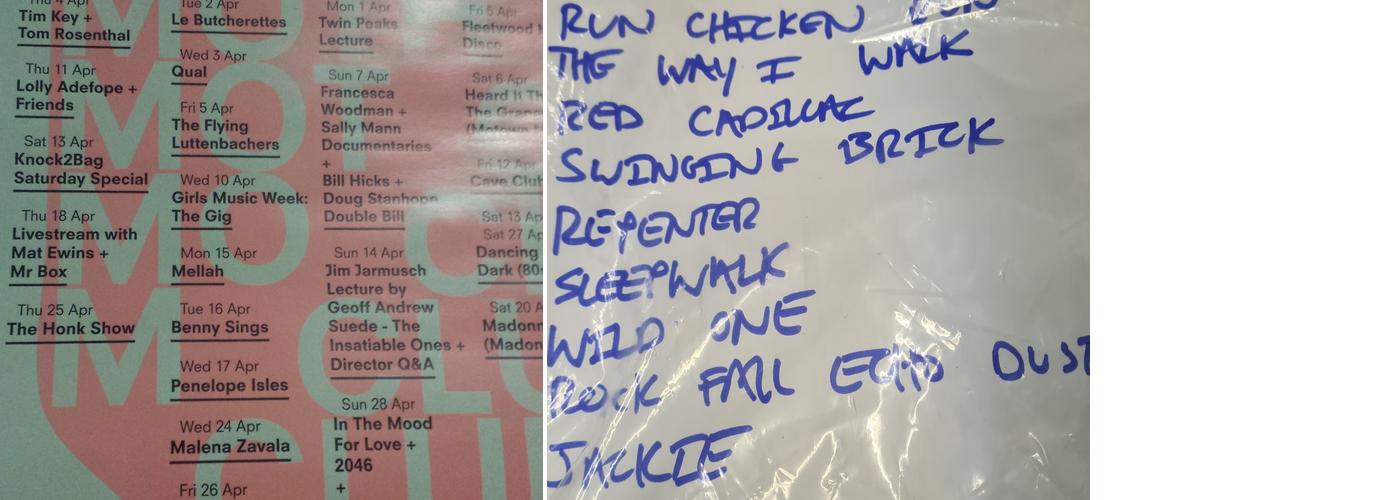 Thu 4 Apr
Tim Key +
Tom Rosenthal
Thu 11 Apr
Lolly Adefope +
Friends
Sat 13 Apr
Knock2Bag
Saturday Special
Thu 18 Apr
Livestream with
Mat Ewins +
Mr Box
Thu 25 Apr
The Honk Show
Tue 2 Apr
Le Butcherettes
Wed 3 Apr
Qual
Fri 5 Apr
The Flying
Luttenbachers
Wed 10 Apr
Girls Music Week:
The Gig
Mon 15 Apr
Mellah
Tue 16 Apr
Benny Sings
Wed 17 Apr
Penelope Isles
Wed 24 Apr
Malena Zavala
Fri 26 Apr
Mon 1 Apr
Twin Peaks
Lecture
Sun 7 Apr
Francesca
Woodman +
Sally Mann
Documentaries
+
Bill Hicks +
Doug Stanhope
Double Bill
Sun 14 Apr
Jim Jarmusch
Lecture by
Geoff Andrew
Suede - The
Insatiable Ones +
Director Q&A
Sun 28 Apr
In The Mood
For Love +
2046
+
Fri 5 Apr
Fleetwood
Disco
Sat 6 Apr
Heard It Th
The Grap
Fri 12 Apr
Cave Club
Sat 13 Ap
Sat 27 Ap
Dancing
Dark (80s
Sat 20 A
Madonn
(Madon
MOT
MOT
RUN CHICKEN
THE WAY I WALK
RED CADILLAC
SWINGING BRICK
REPENTER
SLEEPWALK
WILD ONE
ROCK FALL ECHO DUST
JACKIE